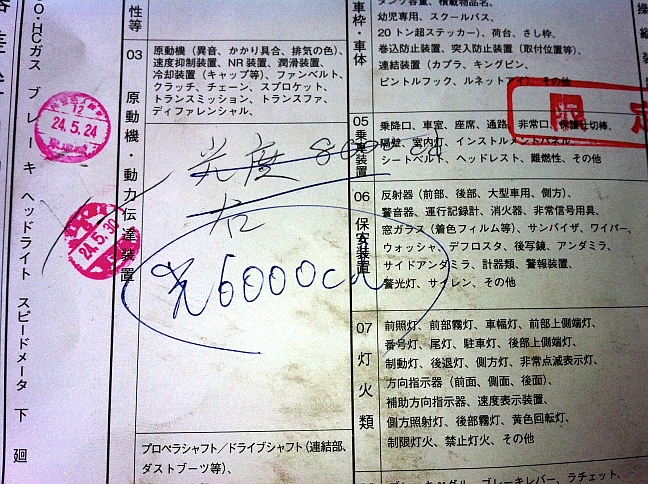 O・HCガス ブレーキ ヘッドライト スピードメータ 下廻
性等
03
原動機・動力伝達装置
原動機（異音、かかり具合、排気の色）、
速度抑制装置、NR装置、潤滑装置、
冷却装置（キャップ等）、ファンベルト、
クラッチ、チェーン、スプロケット、
トランスミッション、トランスファ、
ディファレンシャル、
光度 8000cd
右
光6000cd
プロペラシャフト／ドライブシャフト（連結部、
ダストブーツ等）、
12
24.5.24
24.5.30
車枠・車体
幼児専用、スクールバス、
20トン超ステッカー）、荷台、さし枠、
巻込防止装置、突入防止装置（取付位置等）、
連結装置（カプラ、キングピン、
ピントルフック、ルネットアイ）、その他
限定
05
乗車装置
乗降口、車室、座席、通路、非常口、保護仕切棒、
隔壁、室内灯、インストルメントパネル、
シートベルト、ヘッドレスト、難燃性、その他
06
保安装置
反射器（前部、後部、大型車用、側方）、
警音器、運行記録計、消火器、非常信号用具、
窓ガラス（着色フィルム等）、サンバイザ、ワイパー、
ウォッシャ、デフロスタ、後写鏡、アンダミラ、
サイドアンダミラ、計器類、警報装置、
警光灯、サイレン、その他
07
灯火類
前照灯、前部霧灯、車幅灯、前部上側端灯、
番号灯、尾灯、駐車灯、後部上側端灯、
制動灯、後退灯、側方灯、非常点滅表示灯、
方向指示器（前面、側面、後面）、
補助方向指示器、速度表示装置、
側方照射灯、後部霧灯、黄色回転灯、
制限灯火、禁止灯火、その他
ブレーキペダル、ブレーキレバー、ラチェット、